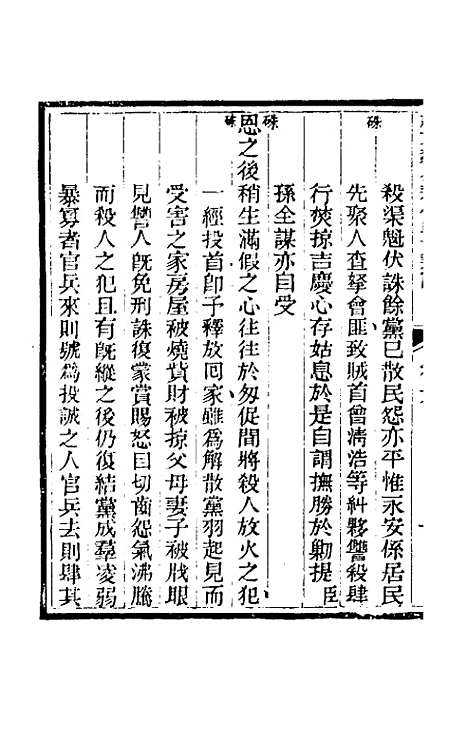 殺渠魁伏誅餘黨已散民怨亦平惟永安係居民
硃
先聚人查拏會匪致賊首曾清浩等糾夥讐殺肆
行焚掠吉慶心存姑息於是自謂撫勝於勦提臣
孫全謀亦自受
硃
恩之後稍生滿假之心往往於匆促間將殺人放火之犯
硃
一經投首卽予釋放回家雖爲解散黨羽起見而
受害之家房屋被燒貲財被掠父母妻子被戕眼
見讐人旣免刑誅復蒙賞賜怒目切齒怨氣沸騰
而殺人之犯且有旣縱之後仍復結黨成羣凌弱
暴寡者官兵來則號爲投誠之人官兵去則肆其